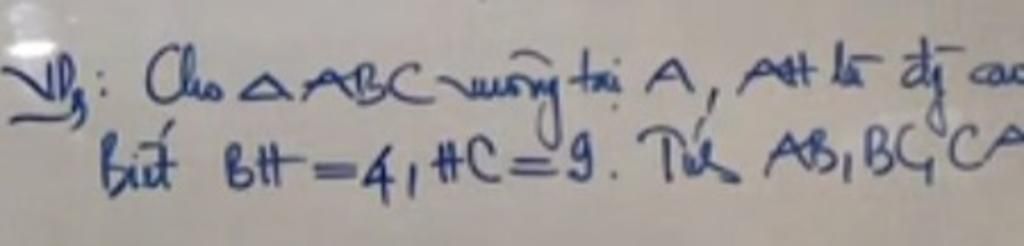 VD3: Cho △ABC vuông tại A, AH là đg cao
Biết BH = 4, HC = 9. Tính AB, BC, CA